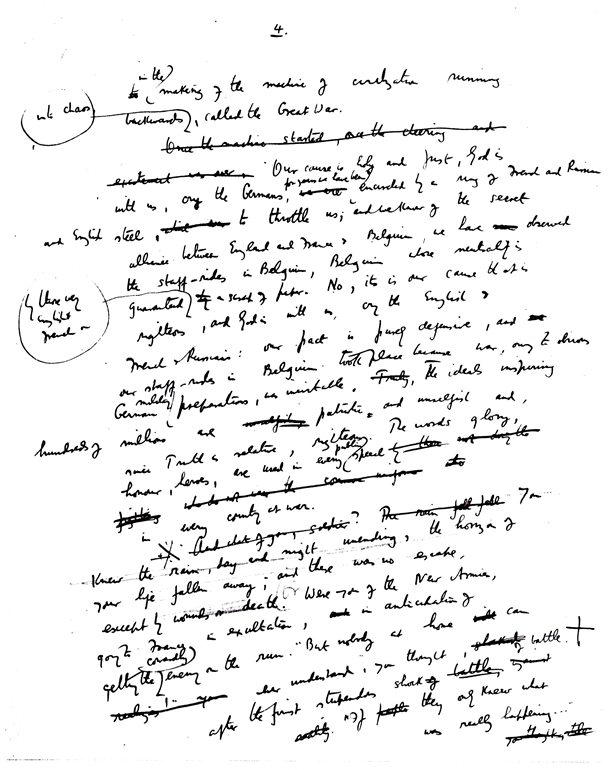 4.
in the
making of the machine of civilization running
into chaos
backwards, called the Great War.
Once the machine started, over the cheering and
excitement was over. Our cause is Holy and Just, God is
for years we have been
with us, cry the Germans, encircled by a ring of French and Russian
and English steel, to throttle us; and we knew of the secret
alliance between England and France & Belgium, we have observed
the staff-rides in Belgium, Belgium whose neutrality is
by these very English & French
guaranteed by a scrap of paper. No, it is our cause that is
righteous, and God is with us, cry the English &
French & Russians: our pact is purely defensive, and
our staff-rides in Belgium took place because war, owing to obvious
military
German preparations, was inevitable. Truly, the ideals inspiring
hundreds of millions are patriotic and unselfish and,
since Truth is relative, righteous. The words glory,
public
honour, heroes, are used in every speech
fighting who do not wear the common uniform
in every country at war.
And what of you, soldier? The rain fell You
knew the rain, day and night unending, the horizon of
your life fallen away; and there was no escape,
except by wounds or death. Or were you of the New Armies,
going to France in exultation, in anticipation of
cowardly
getting the enemy on the run. "But nobody at home can
ever understand, you thought,
after the first stupendous shock of battle.
"If people they only knew what
was really happening...